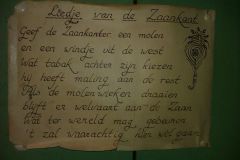 Liedje van de Zaankant
Geef de Zaankanter een molen
en een windje uit de west
Wat tabak achter zijn kiezen
hij heeft maling aan de rest
Als de molenwieken draaien
blijft er welvaart aan de Zaan
Wat ter wereld mag gebeuren
't zal waarachtig hier wel gaan